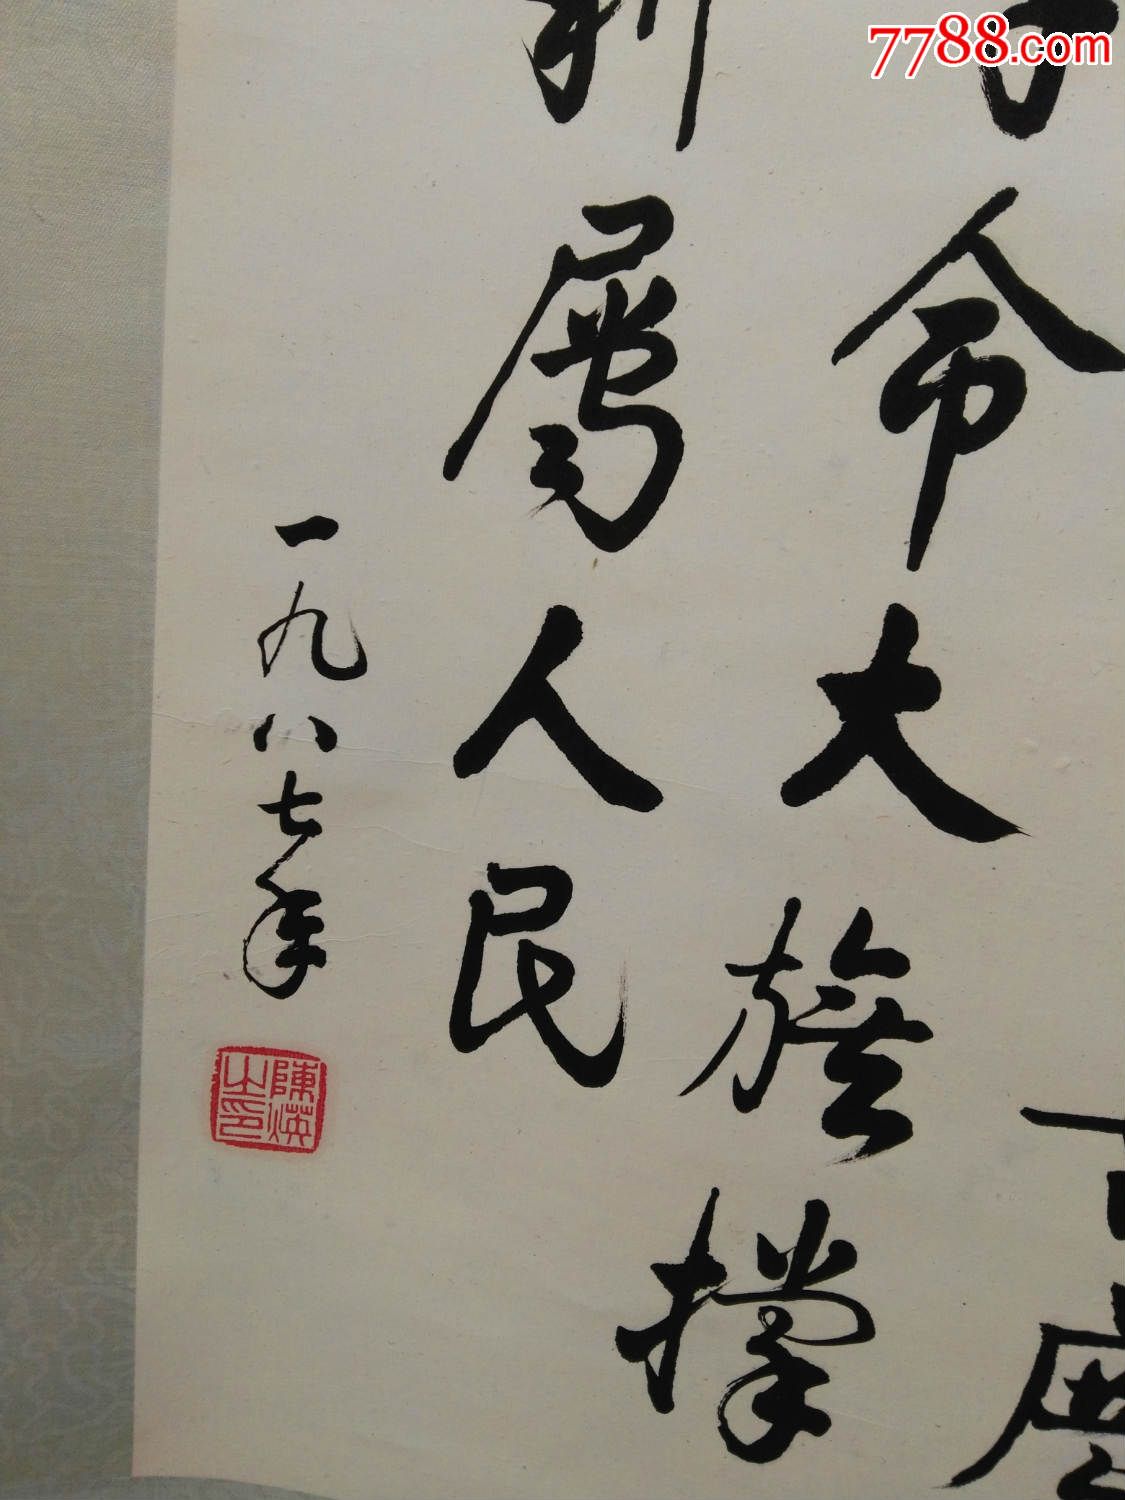 7788.com
命大旗撑
利屬人民
一九八七年
陳煐之印